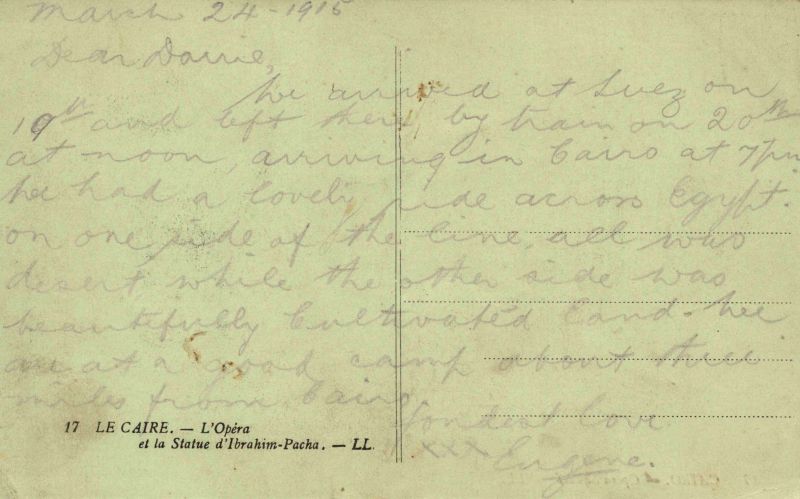 March 24-1915
Dear Dorrie,
We arrived at Suez on
19th and left there by train on 20th
at noon, arriving in Cairo at 7pm
We had a lovely ride across Egypt.
on one side of the line, all was
desert while the other side was
beautifully Cultivated land. We
are at a good camp about three
miles from Cairo
fondest love
xxx Eugene.
17 LE CAIRE. — L'Opéra
et la Statue d'Ibrahim-Pacha. — LL.